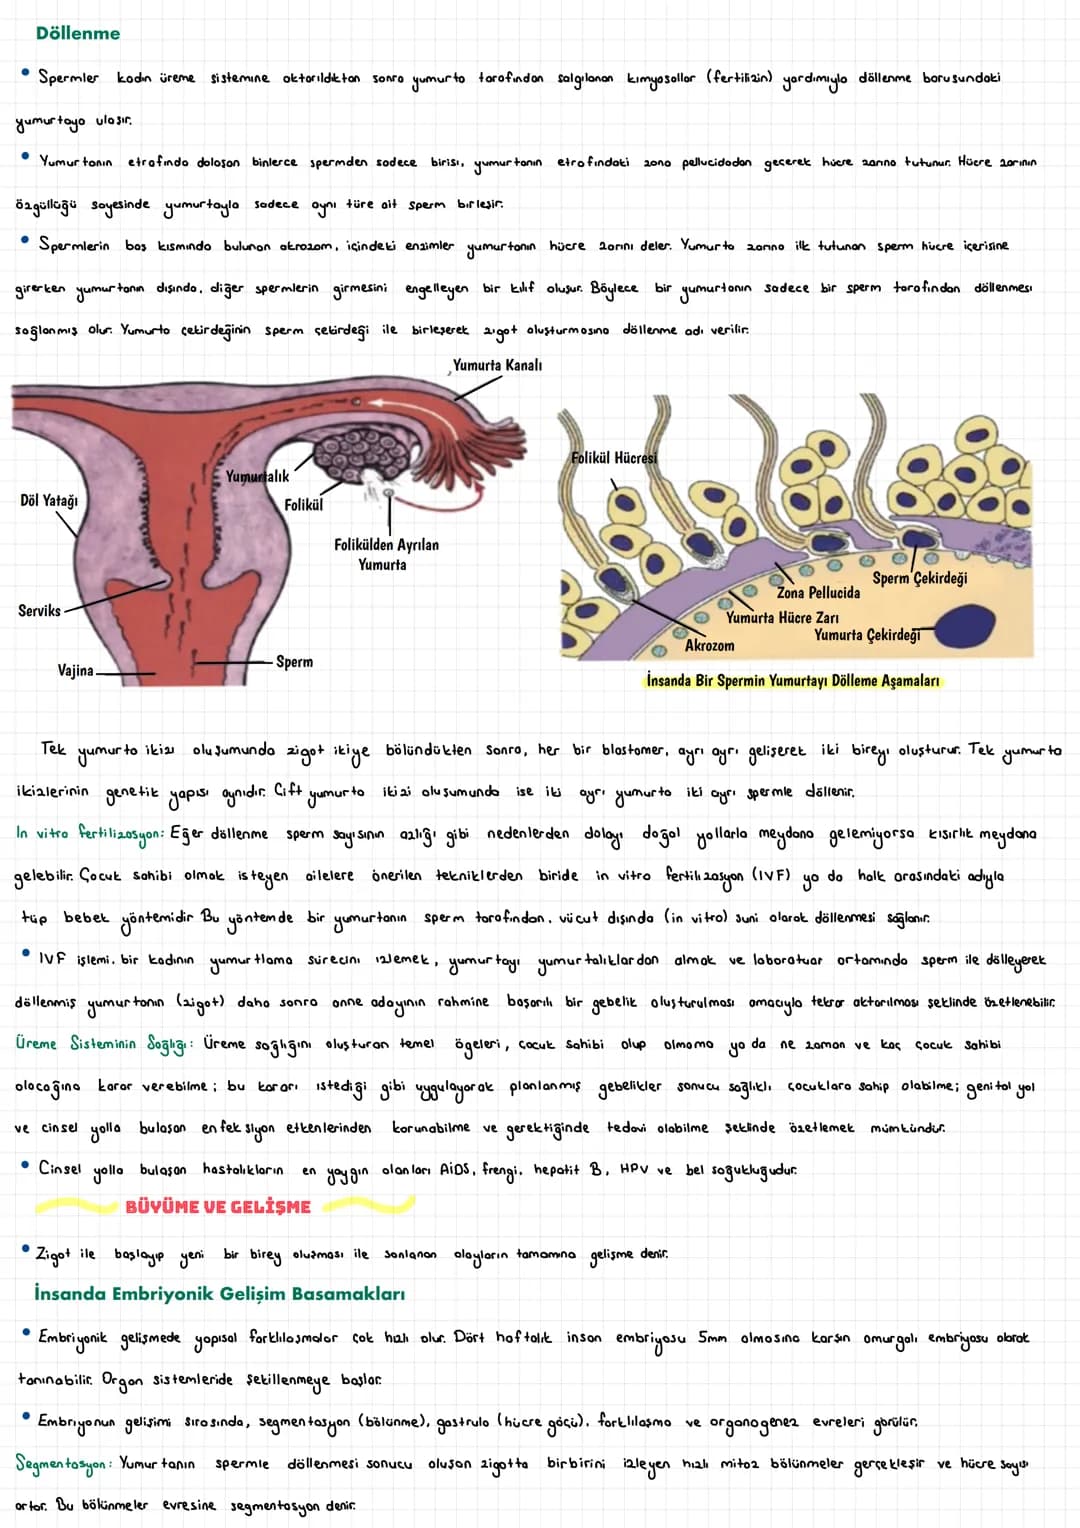 Döllenme
• Spermler kadın üreme sistemine aktarıldıktan sonra yumurta tarafından salgılanan kimyasallar (fertilizin) yardımıyla döllenme borusundaki
yumurtaya ulaşır.
• Yumurtanın etrafında dolaşan binlerce spermden sadece birisi, yumurtanın etrafındaki zona pellucidadan geçerek hücre zarına tutunur. Hücre zarının
özgüllüğü sayesinde yumurtayla sadece aynı türe ait sperm birleşir.
• Spermlerin baş kısmında bulunan akrozom, içindeki enzimler yumurtanın hücre zarını deler. Yumurta zarına ilk tutunan sperm hücre içerisine
girerken yumurtanın dışında, diğer spermlerin girmesini engelleyen bir kılıf oluşur. Böylece bir yumurtanın sadece bir sperm tarafından döllenmesi
sağlanmış olur. Yumurta çekirdeğinin sperm çekirdeği ile birleşerek zigot oluşturmasına döllenme adı verilir.
Yumurta Kanalı
Yumurtalık
Folikül
Döl Yatağı
Folikülden Ayrılan
Yumurta
Serviks
Vajina
Sperm
Folikül Hücresi
Sperm Çekirdeği
Zona Pellucida
Yumurta Hücre Zarı
Yumurta Çekirdeği
Akrozom
İnsanda Bir Spermin Yumurtayı Dölleme Aşamaları
Tek yumurta ikizi oluşumunda zigot ikiye bölündükten sonra, her bir blastomer, ayrı ayrı gelişerek iki bireyi oluşturur. Tek yumurta
ikizlerinin genetik yapısı aynıdır. Çift yumurta ikizi oluşumunda ise iki ayrı yumurta iki ayrı spermle döllenir.
In vitro fertilizasyon: Eğer döllenme sperm sayısının azlığı gibi nedenlerden dolayı doğal yollarla meydana gelemiyorsa kısırlık meydana
gelebilir. Çocuk sahibi olmak isteyen ailelere önerilen tekniklerden biride in vitro fertilizasyon (IVF) ya da halk arasındaki adıyla
tüp bebek yöntemidir Bu yöntemde bir yumurtanın sperm tarafından, vücut dışında (in vitro) suni olarak döllenmesi sağlanır.
• IVF işlemi, bir kadının yumurtlama sürecini izlemek, yumurtayı yumurtalıklardan almak ve laboratuar ortamında sperm ile dölleyerek
döllenmiş yumurtanın (zigot) daha sonra anne adayının rahmine başarılı bir gebelik oluşturulması amacıyla tekrar aktarılması şeklinde özetlenebilir.
Üreme Sisteminin Sağlığı: Üreme sağlığını oluşturan temel ögeleri, çocuk sahibi olup olmama ya da ne zaman ve kaç çocuk sahibi
olacağına karar verebilme; bu kararı istediği gibi uygulayarak planlanmış gebelikler sonucu sağlıklı çocuklara sahip olabilme; genital yol
ve cinsel yolla bulaşan enfeksiyon etkenlerinden korunabilme ve gerektiğinde tedavi olabilme şeklinde özetlemek mümkündür.
• Cinsel yolla bulaşan hastalıkların en yaygın olanları AiDS, frengi, hepatit B, HPV ve bel soğukluğudur.
BÜYÜME VE GELİŞME
• Zigot ile başlayıp yeni bir birey oluşması ile sonlanan olayların tamamına gelişme denir.
İnsanda Embriyonik Gelişim Basamakları
• Embriyonik gelişmede yapısal farklılaşmalar çok hızlı olur. Dört haftalık insan embriyosu 5mm olmasına karşın omurgalı embriyosu olarak
tanınabilir. Organ sistemleride şekillenmeye başlar.
• Embriyonun gelişimi sırasında, segmentasyon (bölünme), gastrula (hücre göçü), farklılaşma ve organogenez evreleri görülür.
Segmentasyon: Yumurtanın spermle döllenmesi sonucu oluşan zigotta birbirini izleyen hızlı mitoz bölünmeler gerçekleşir ve hücre sayısı
artar. Bu bölünmeler evresine segmentasyon denir.